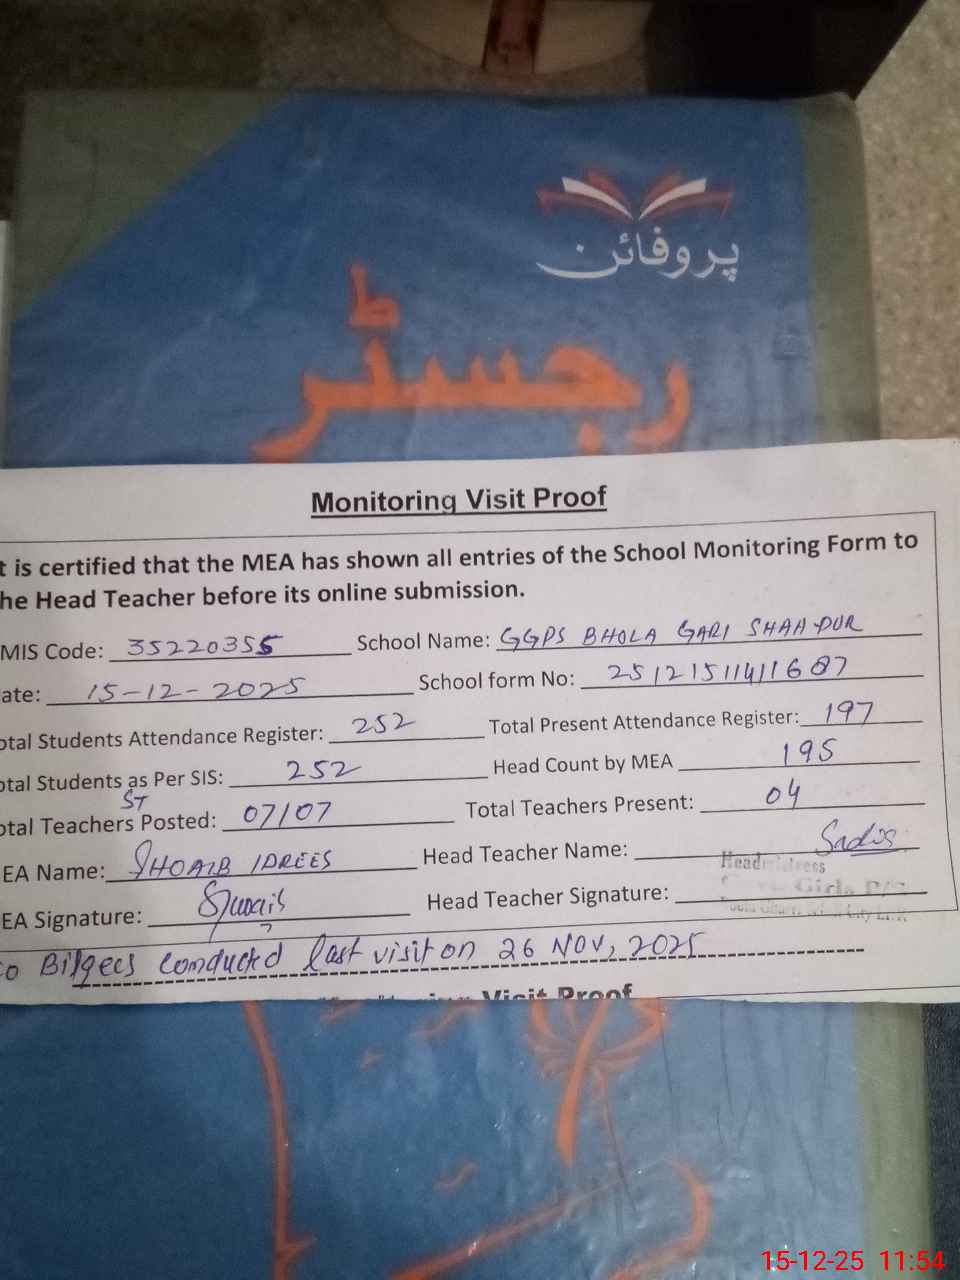 پروفائن
رجسٹر
Monitoring Visit Proof
t is certified that the MEA has shown all entries of the School Monitoring Form to
he Head Teacher before its online submission.
MIS Code: 35220355 School Name: GGPS BHOLA GARI SHAHPUR
ate: 15-12-2025 School form No: 25121511411687
otal Students Attendance Register: 252 Total Present Attendance Register: 197
otal Students as Per SIS: 252 Head Count by MEA 195
ST
otal Teachers Posted: 07/07 Total Teachers Present: 04
EA Name: SHOAIB IDREES Head Teacher Name:
Headmistress
EA Signature: Head Teacher Signature:
Girls P/S
o Bilqees conducted last visit on 26 NOV, 2025
Visit Proof
15-12-25 11:54